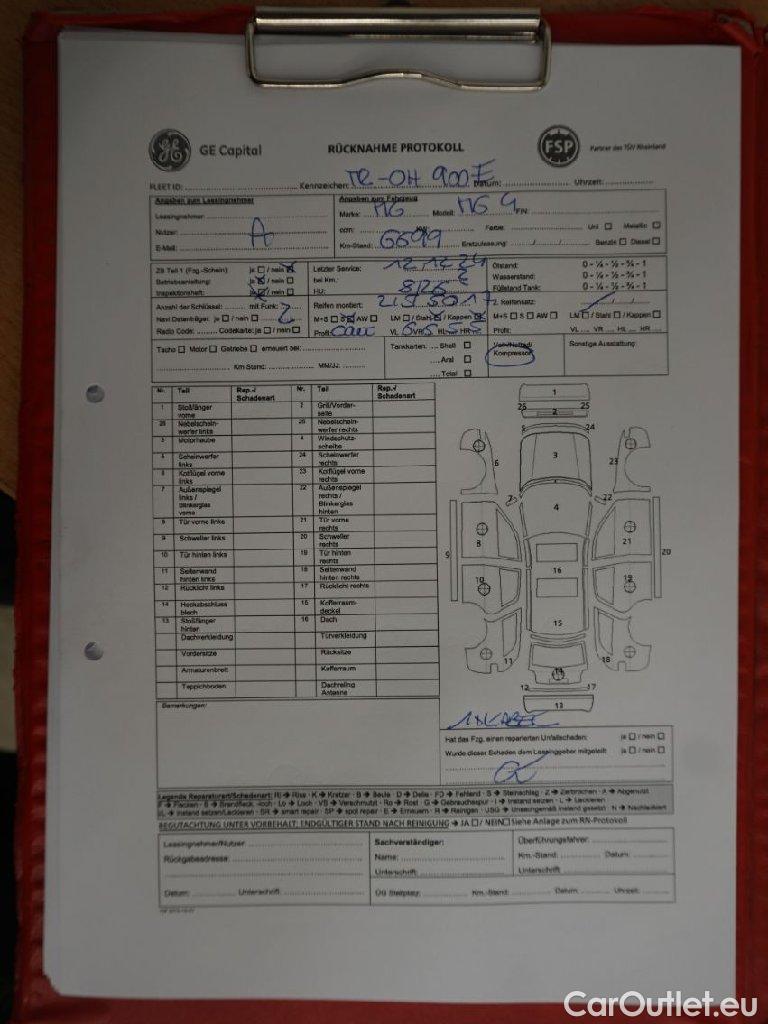 GE Capital
RÜCKNAHME PROTOKOLL
FSP
Partner des TÜV Rheinland
FLEET ID:
Kennzeichen:
-OH 900E
Datum:
Uhrzeit:
Angaben zum Leasingnehmer
Leasingnehmer:
Nutzer: A
E-Mail:
Angaben zum Fahrzeug
Marke: MG Modell: MG 4 FIN:
ccm: KW: Farbe: Uni Metallic
Km-Stand: 6699 Erstzulassung: / / Benzin Diesel
ZB Teil 1 (Fzg.-Schein) ja / nein
Betriebsanleitung: ja / nein
Inspektionsheft: ja / nein
Letzter Service: 12.12.24
bei Km.: €
HU: 8/26
Ölstand: 0 - ¼ - ½ - ¾ - 1
Wasserstand: 0 - ¼ - ½ - ¾ - 1
Füllstand Tank: 0 - ¼ - ½ - ¾ - 1
Anzahl der Schlüssel: mit Funk: 2
Navi Datenträger: ja / nein
Radio Code: Codekarte: ja / nein
Reifen montiert: 215 50 17
M+S S AW LM / Stahl / Kappen
Profil: VL 6 VR 5 HL 5 HR 5
2. Reifensatz:
M+S S AW LM / Stahl / Kappen
Profil: VL VR HL HR
Tacho Motor Getriebe erneuert bei:
Km Stand: MM/JJ:
Tankkarten: Shell
Aral
Total
Verb/Notrad/
Kompressor
Sonstige Ausstattung:
Nr. Teil Rep./ Schadenart Nr. Teil Rep./ Schadenart
1 Stoßfänger vorne 2 Grill/Vorderseite
26 Nebelscheinwerfer links 25 Nebelscheinwerfer rechts
3 Motorhaube 4 Windschutzscheibe
5 Scheinwerfer links 24 Scheinwerfer rechts
6 Kotflügel vorne links 23 Kotflügel vorne rechts
7 Außenspiegel links / Blinkerglas vorne 22 Außenspiegel rechts / Blinkerglas hinten
8 Tür vorne links 21 Tür vorne rechts
9 Schweller links 20 Schweller rechts
10 Tür hinten links 19 Tür hinten rechts
11 Seitenwand hinten links 18 Seitenwand hinten rechts
12 Rücklicht links 17 Rücklicht rechts
14 Heckabschlussblech 15 Kofferraumdeckel
13 Stoßfänger hinten 16 Dach
Dachverkleidung Türverkleidung
Vordersitze Rücksitze
Armaturenbrett Kofferraum
Teppichboden Dachreling Antenne
1
26 2 25
5 24
6 3 23
7 4 22
9 8 21 20
10 16 19
15
11 14 18
12 17
13
Bemerkungen:
Hat das Fzg. einen reparierten Unfallschaden: ja / nein
Wurde dieser Schaden dem Leasinggeber mitgeteilt ja / nein
Legende Reparaturart/Schadenart: Ri → Riss · K → Kratzer · B → Beule · D → Delle · FD → Fehlend · S → Steinschlag · Z → Zerbrochen · A → Abgenutzt
F → Flecken · B → Brandfleck, -loch · Lo → Loch · VS → Verschmutzt · Ro → Rost · G → Gebrauchsspur · I → Instand setzen · L → Lackieren
I/L → Instand setzen/Lackieren · SR → smart repair · SP → spot repair · E → Erneuern · R → Reinigen · USG → Unsachgemäß instand gesetzt · N → Nachlackiert
BEGUTACHTUNG UNTER VORBEHALT: ENDGÜLTIGER STAND NACH REINIGUNG → JA / NEIN Siehe Anlage zum RN-Protokoll
Leasingnehmer/Nutzer:
Rückgabeadresse:
Datum: Unterschrift:
Sachverständiger:
Name:
Unterschrift:
Überführungsfahrer:
Km.-Stand: Datum:
Unterschrift:
ÜG Stellplatz: Km.-Stand: Datum: Uhrzeit:
CarOutlet.eu